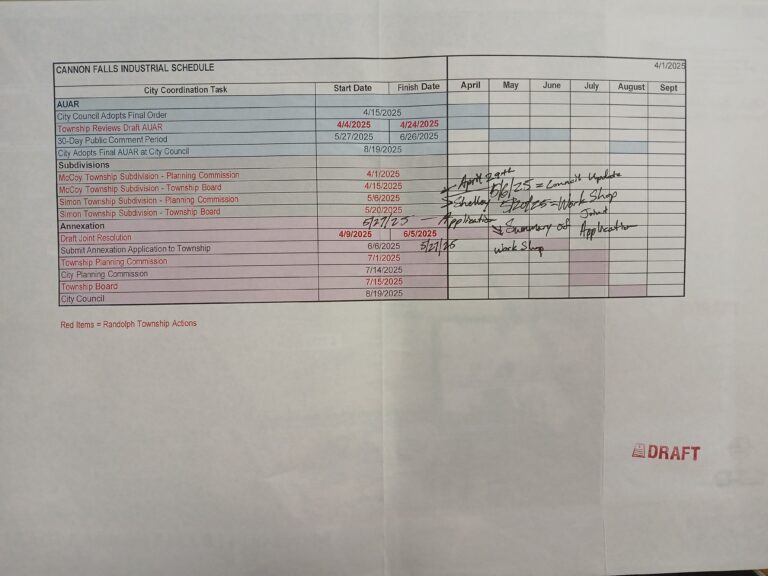 CANNON FALLS INDUSTRIAL SCHEDULE 4/1/2025
City Coordination Task Start Date Finish Date April May June July August Sept
AUAR
City Council Adopts Final Order 4/15/2025
Township Reviews Draft AUAR 4/4/2025 4/24/2025
30-Day Public Comment Period 5/27/2025 6/26/2025
City Adopts Final AUAR at City Council 8/19/2025
Subdivisions
McCoy Township Subdivision - Planning Commission 4/1/2025
April 29th
McCoy Township Subdivision - Township Board 4/15/2025
5/6/25 = Council Update
Simon Township Subdivision - Planning Commission 5/6/2025
Shelley 5/20/25 = Work Shop
Simon Township Subdivision - Township Board 5/20/2025
Joint
Annexation 5/27/25 — Application
Summary of Application
Draft Joint Resolution 4/9/2025 6/5/2025
Submit Annexation Application to Township 6/6/2025 5/27/25 Work Shop
Township Planning Commission 7/1/2025
City Planning Commission 7/14/2025
Township Board 7/15/2025
City Council 8/19/2025
Red Items = Randolph Township Actions
DRAFT